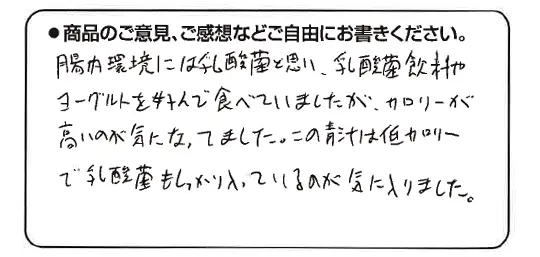 ●商品のご意見、ご感想などご自由にお書きください。
腸内環境には乳酸菌と思い、乳酸菌飲料や
ヨーグルトを好んで食べていましたが、カロリーが
高いのが気になってました。この青汁は低カロリー
で乳酸菌もしっかり入っているのが気に入りました。